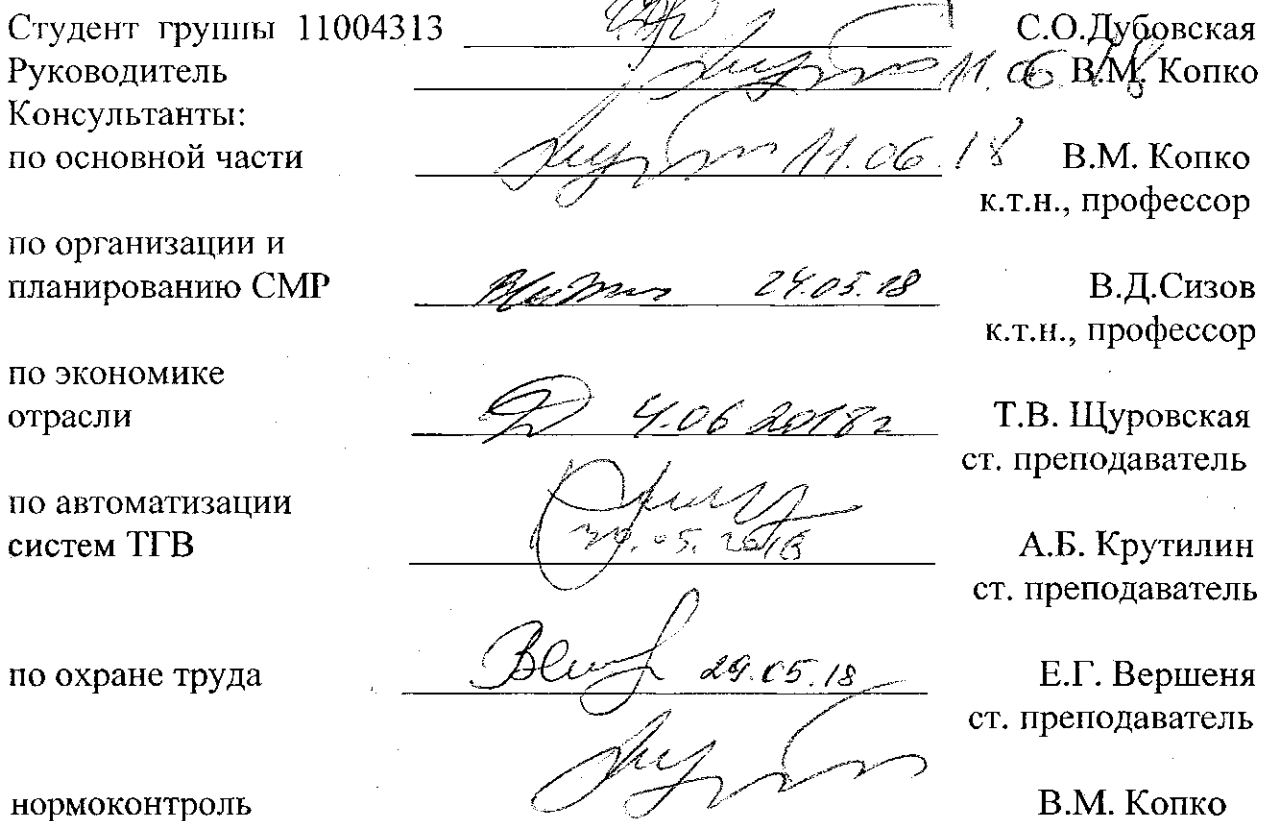 Студент группы 11004313 С.О.Дубовская
Руководитель 11.06.18 В.М. Копко
Консультанты:
по основной части 11.06.18 В.М. Копко
к.т.н., профессор
по организации и
планированию СМР 24.05.18 В.Д.Сизов
к.т.н., профессор
по экономике
отрасли 4.06 2018г Т.В. Щуровская
ст. преподаватель
по автоматизации
систем ТГВ 05.2018 А.Б. Крутилин
ст. преподаватель
по охране труда 29.05.18 Е.Г. Вершеня
ст. преподаватель
нормоконтроль В.М. Копко